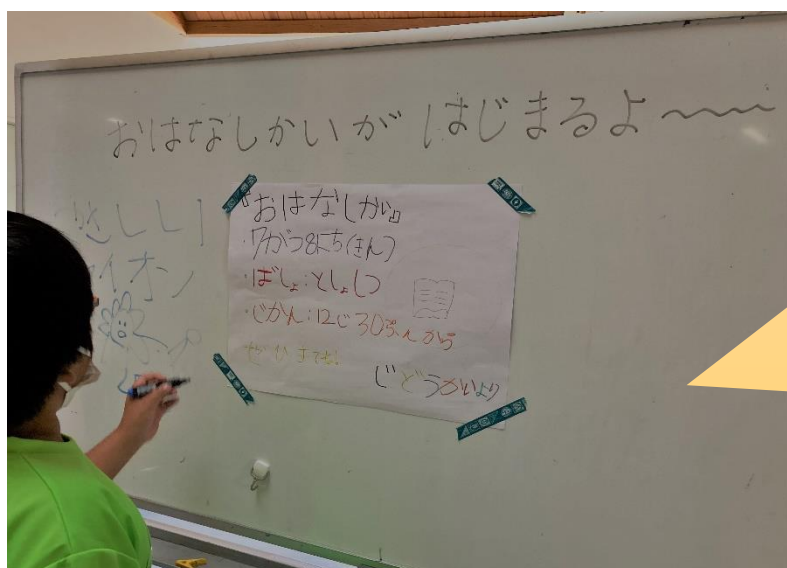 おはなしかいが はじまるよ〜〜
『おはなしかい』
・7がつ8にち(きん)
・ばしょ:としょしつ
・じかん:12じ30ぷんから
ぜひきてね!
じどうかいより